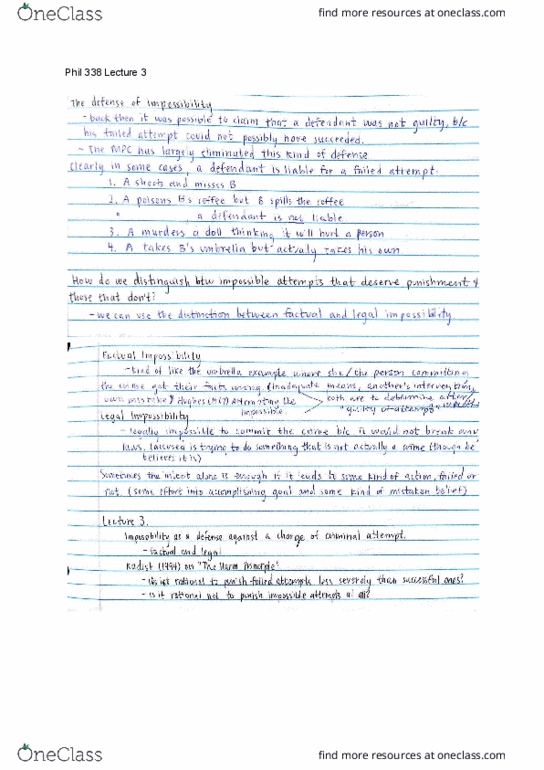 OneClass
find more resources at oneclass.com
Phil 338 Lecture 3
The defense of impossibility
- back then it was possible to claim that a defendent was not guilty, b/c
his failed attempt could not possibly have succeeded.
- The MPC has largely eliminated this kind of defense
Clearly in some cases, a defendant is liable for a failed attempt:
1. A shoots and misses B
2. A poisons B's coffee but B spills the coffee
" , a defendant is not liable
3. A murders a doll thinking it will hurt a person
4. A takes B's umbrella but actualy takes his own.
How do we distinguish btw impossible attempts that deserve punishment &
those that don't?
- we can use the distinction between factual and legal impossibility
Factual Impossibility
- kind of like the umbrella example where she/the person committing
the crime got their facts wrong (inadequate means, another's intervention,
own mistake) Hughes (1967) Attempting the
Impossible.
both are to determine
"guilty of attempt"
Legal Impossibility
- legally impossible to commit the crime b/c it would not break any
laws. (accused is trying to do something that is not actually a crime though he
believes it is)
Sometimes the intent alone is enough if it leads to some kind of action, failed or
not. (some effort into accomplishing goal and some kind of mistaken belief)
Lecture 3.
Impossibility as a defense against a charge of criminal attempt.
- factual and legal
Kadish (1994) on "The Harm Principle"
- is it rational to punish failed attempts less severely than successful ones?
- is it rational not to punish impossible attempts at all?
OneClass
find more resources at oneclass.com